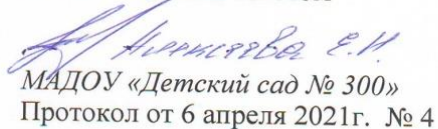 Алексеева Е.И.
МАДОУ «Детский сад № 300»
Протокол от 6 апреля 2021г. № 4